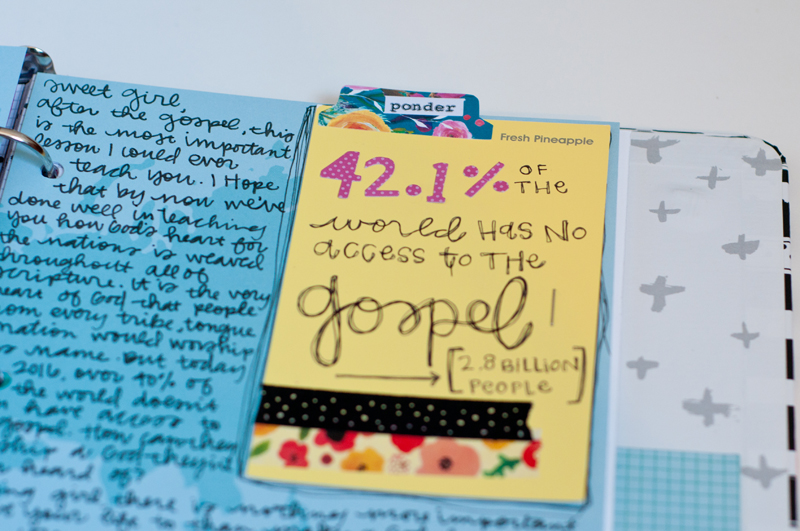 sweet girl,
after the gospel, this
is the most important
lesson I could ever
teach you. I Hope
that by now we've
done well in teaching
you how God's heart for
the nations is weaved
throughout all of
scripture. It is the very
heart of God that people
from every tribe, tongue
nation would worship
name. But today
2016, over 40% of
the world doesn't
have access to
gospel. How can they
a God they've
heard of?
girl there is nothing more important
your life to than
ponder
Fresh Pineapple
42.1% OF
THE
world HAS NO
access to THE
gospel!
[2.8 BILLION
PEOPLE]